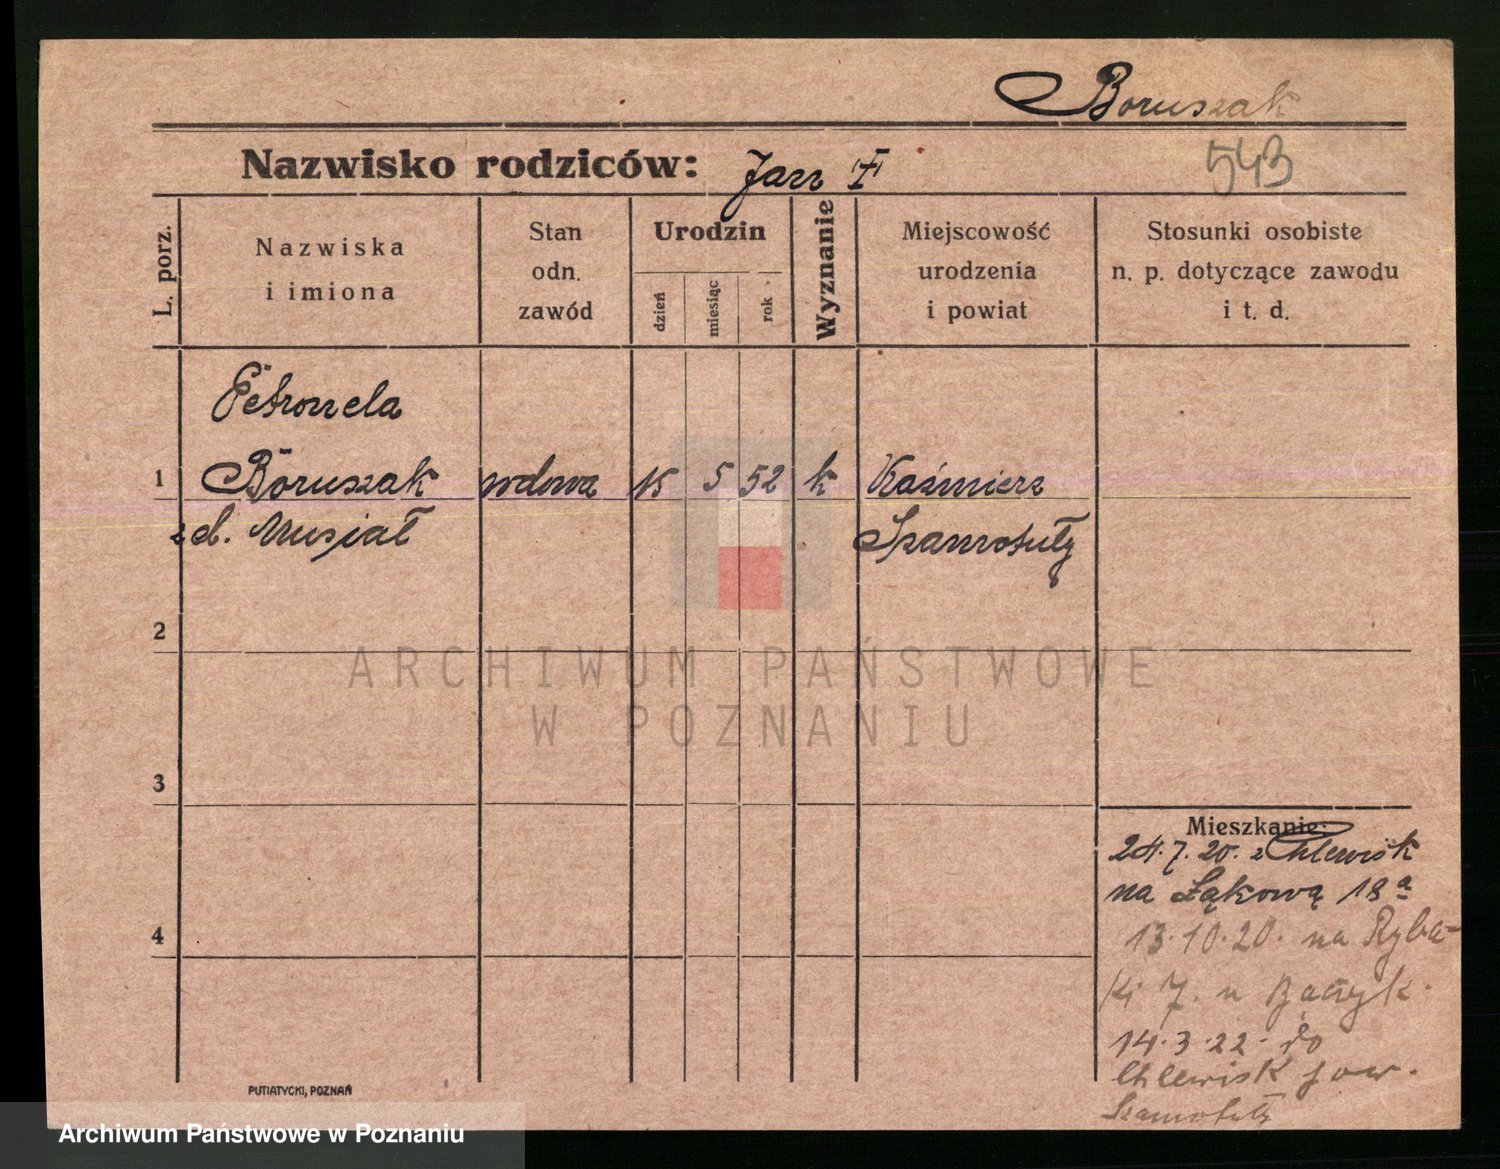 Boruszak
Nazwisko rodziców: Jan †
543
L. porz.
Nazwiska
i imiona
Stan
odn.
zawód
Urodzin
dzień
miesiąc
rok
Wyznanie
Miejscowość
urodzenia
i powiat
Stosunki osobiste
n. p. dotyczące zawodu
i t. d.
Petronela
1 Boruszak wdowa 15 5 52 k Kaźmierz
z d. Musiał Szamotuły
2
ARCHIWUM PAŃSTWOWE
W POZNANIU
3
Mieszkanie:
24.7.20. z Chlewisk
na Łąkową 18a
4
13.10.20. na Ryba-
ki 7. u
14.3.22. do
Chlewisk pow.
Szamotuły
PUTIATYCKI, POZNAŃ
Archiwum Państwowe w Poznaniu